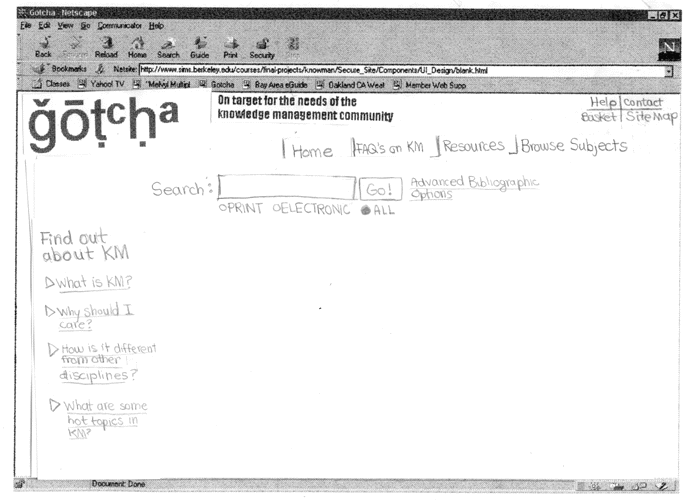 Gotcha - Netscape
File Edit View Go Communicator Help
Back Reload Home Search Guide Print Security
N
Bookmarks Netsite: http://www.sims.berkeley.edu/courses/final-projects/knowman/Secure_Site/Components/UI_Design/blank.html
Classes Yahoo! TV "Melvyl Multipl Gotcha Bay Area eGuide Oakland CA West Member Web Supp
ǧōṭᶜḥᵃ
On target for the needs of the
knowledge management community
Help | Contact
Basket | Site Map
Home FAQ's on KM Resources Browse Subjects
Search: Go! Advanced Bibliographic
Options
PRINT ELECTRONIC ALL
Find out
about KM
What is KM?
Why should I
care?
How is it different
from other
disciplines?
What are some
hot topics in
KM?
Document: Done